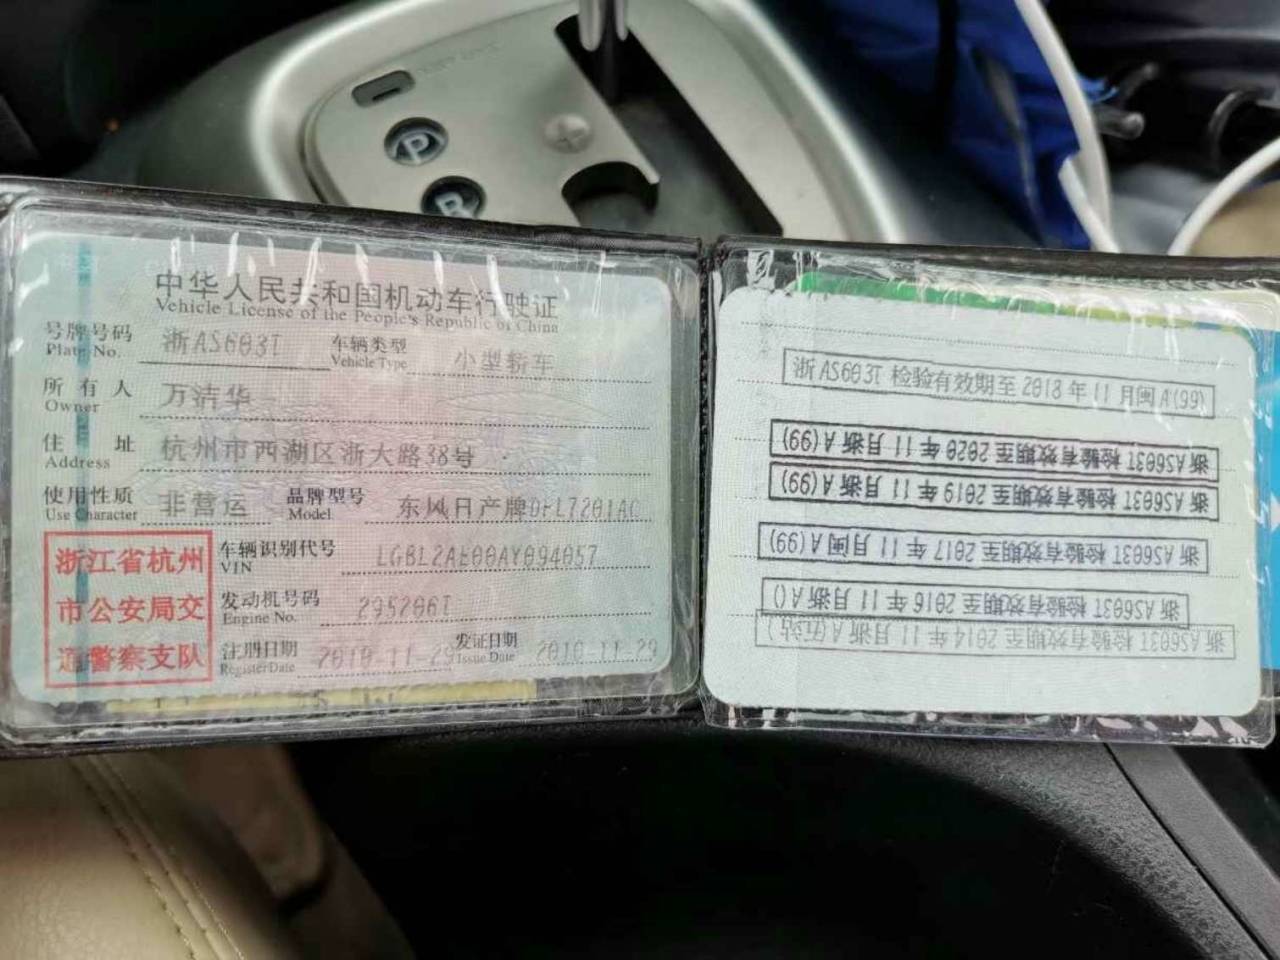 P
R
中华人民共和国机动车行驶证
Vehicle License of the People's Republic of China
号牌号码 浙AS603T 车辆类型 小型轿车
Plate No. Vehicle Type
所有人 万洁华
Owner
住址 杭州市西湖区浙大路38号
Address
使用性质 非营运 品牌型号 东风日产牌DFL7201AC
Use Character Model
浙江省杭州
市公安局交
通警察支队
车辆识别代号 LGBL2AE00AY094057
VIN
发动机号码 295206T
Engine No.
注册日期 2010-11-29 发证日期 2010-11-29
Register Date Issue Date
浙AS603T 检验有效期至2018年11月闽A(99)
浙AS603T 检验有效期至2020年11月浙A(99)
浙AS603T 检验有效期至2019年11月浙A(99)
浙AS603T 检验有效期至2017年11月闽A(99)
浙AS603T 检验有效期至2016年11月浙A()
浙AS603T 检验有效期至2014年11月浙A